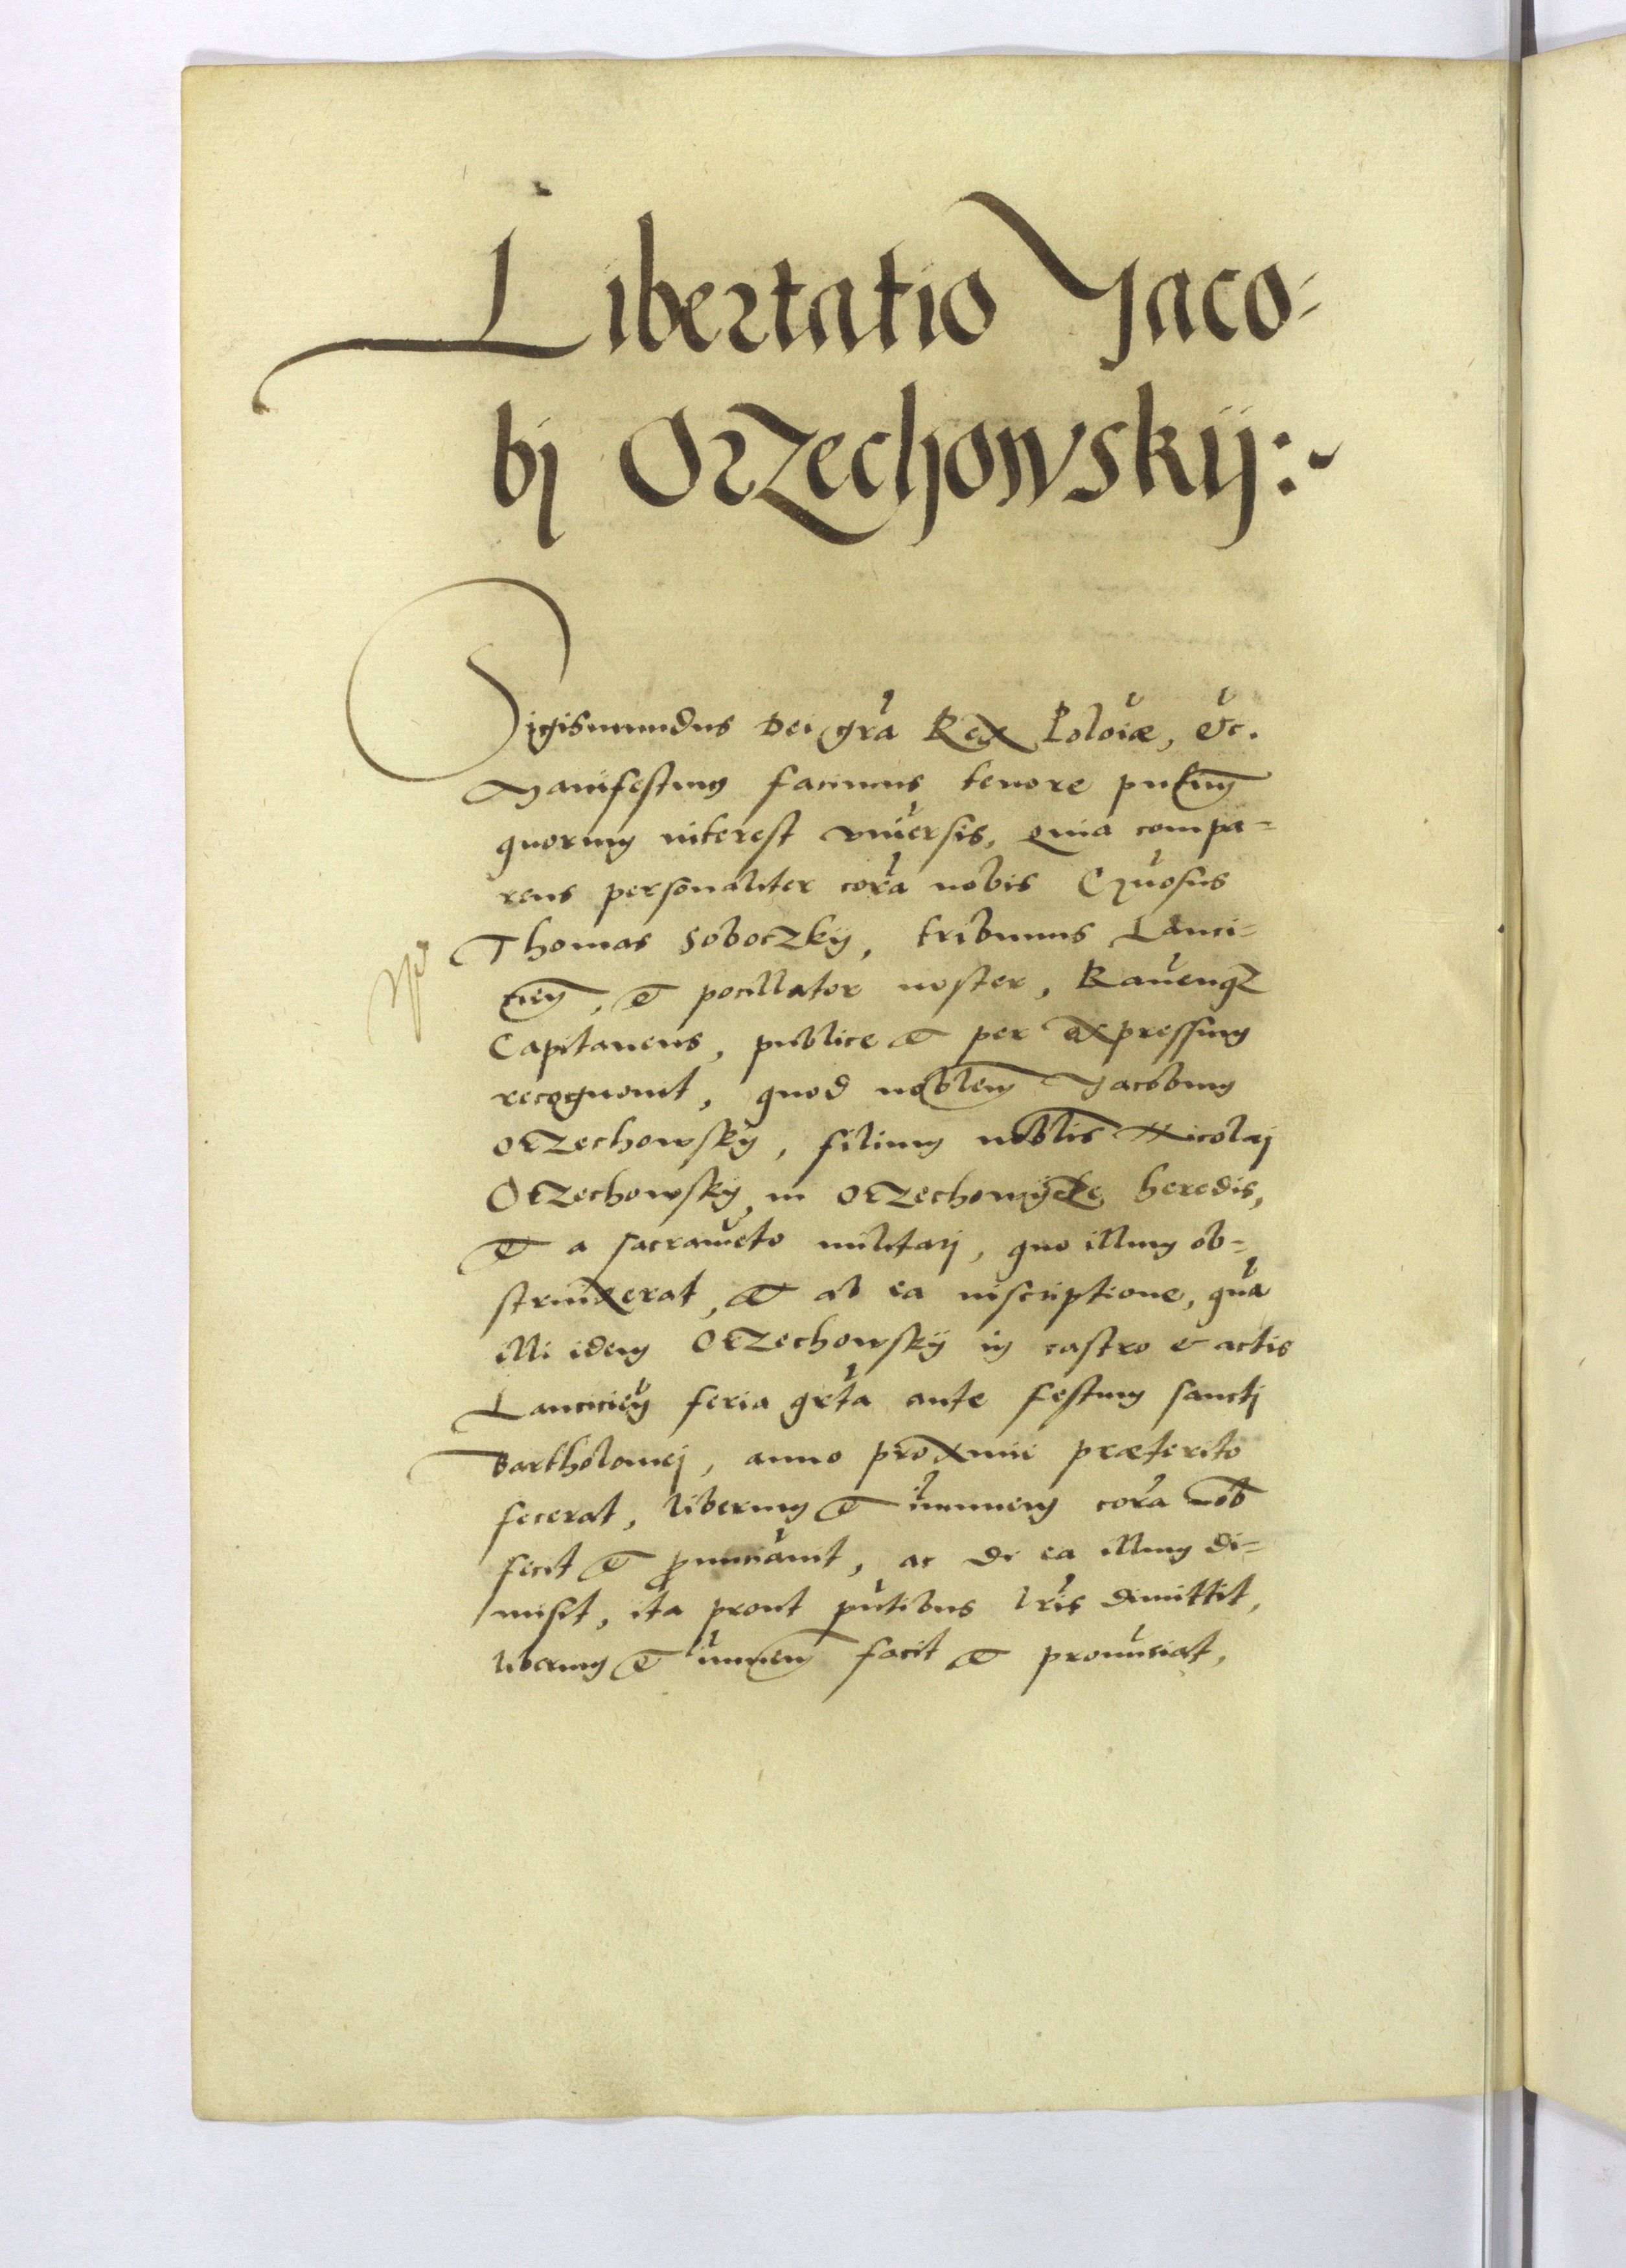 Libertatio Jaco-
bj Orzechowskij:~
Sigismundus Dei gra Rex Poloiæ, etc.
Manifestum facimus tenore pntium
quorum interest vniversis, Quia compa-
rens personaliter cora nobis Gnosus
Thomas Soboczkij, tribunus Lanci-
cien, et pocillator noster, Ravenqz
Capitaneus, publice et per expressum
recognovit, quod noblem Jacobum
Orzechowskij, filium noblis Nicolaj
Orzechowskij, in Orzechowijcze heredis,
et a sacrameto militarj, quo illum ob-
strinxerat, et ab ea inscriptione, qua
illi idem Orzechowskij in castro et actis
Lancicien feria qrta ante festum sanctj
Bartholomej, anno proxime præterito
fecerat, liberum et immunem cora nob
fecit et pnunciavit, ac de ea illum di-
misit, ita prout pntibus lris dimittit,
liberum et immnem facit et pronuciat,